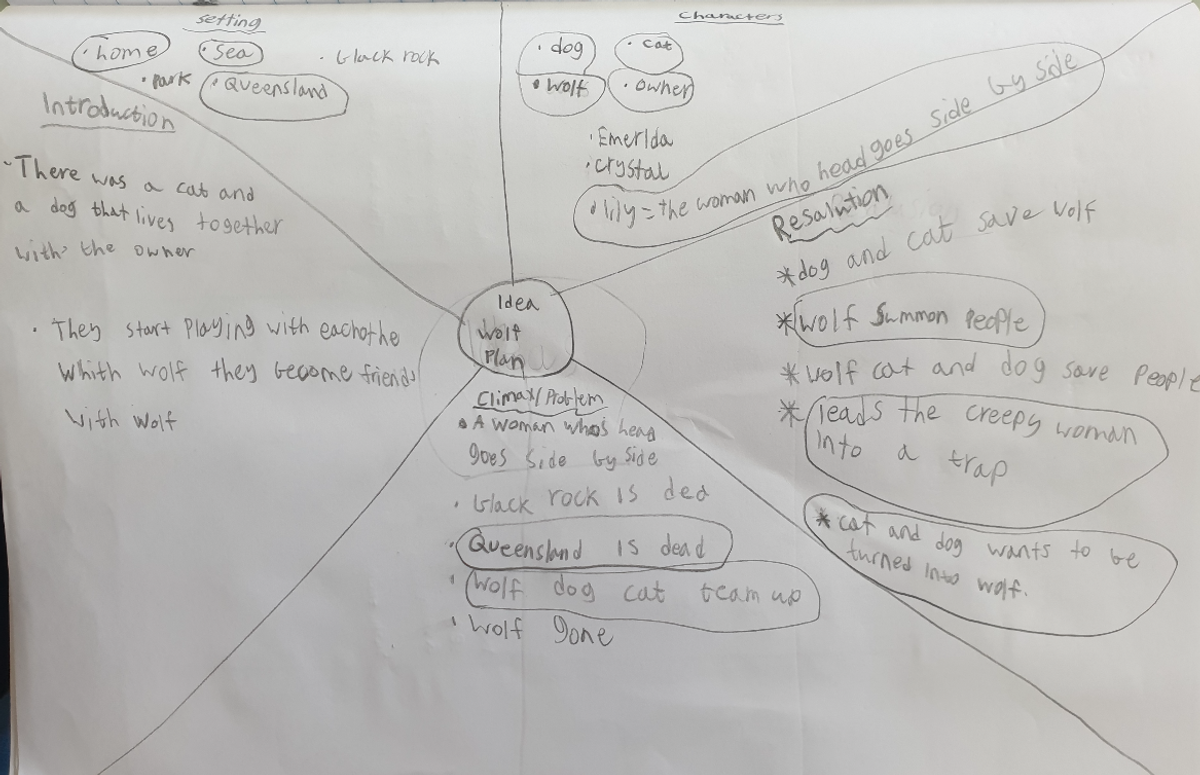 Setting
• home
• Sea
• black rock
• Park
• Queensland
Characters
• dog
• cat
• wolf
• owner
• Emerlda
• Crystal
• lily = the woman who head goes side by side
Introduction
- There was a cat and
a dog that lives together
with the owner
• They start Playing with eachothe
Whith wolf they become friends
with wolf
Idea
wolf
Plan
Climax/Problem
• A woman who's head
goes side by side
• black rock is ded
• Queensland is dead
• Wolf dog cat team up
• Wolf gone
Resalution
* dog and cat save wolf
* wolf Summon People
* wolf cat and dog save People
* leads the creepy woman
into a trap
* cat and dog wants to be
turned into wolf.